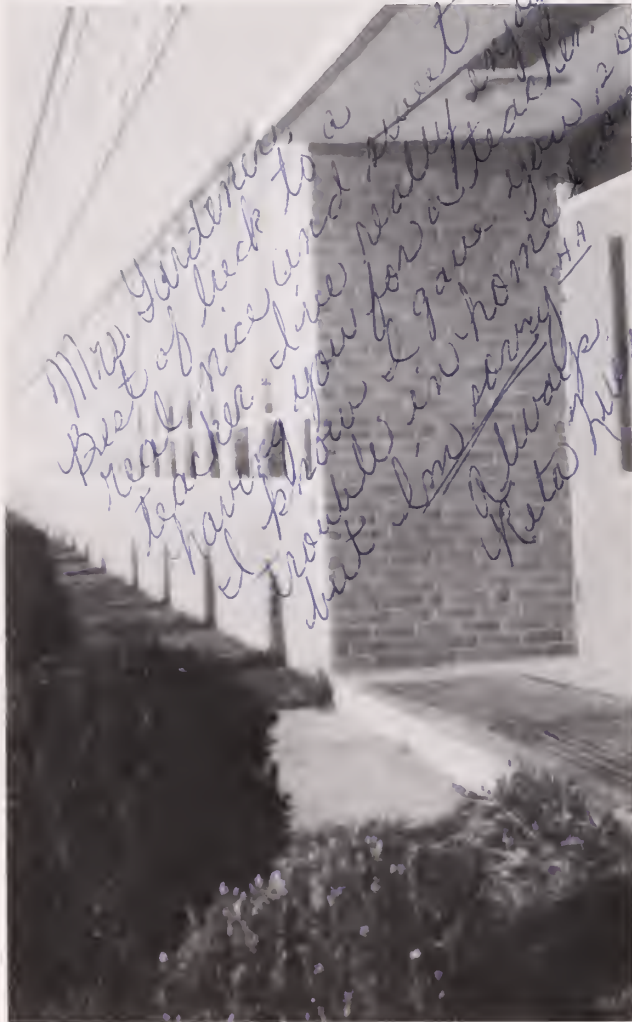 Mrs. Gardener,
Best of luck to a
real nice and sweet
teacher. I've really
having you for a teacher.
I know I gave you so
trouble in home
but I'm sorry HA
Always
Reta